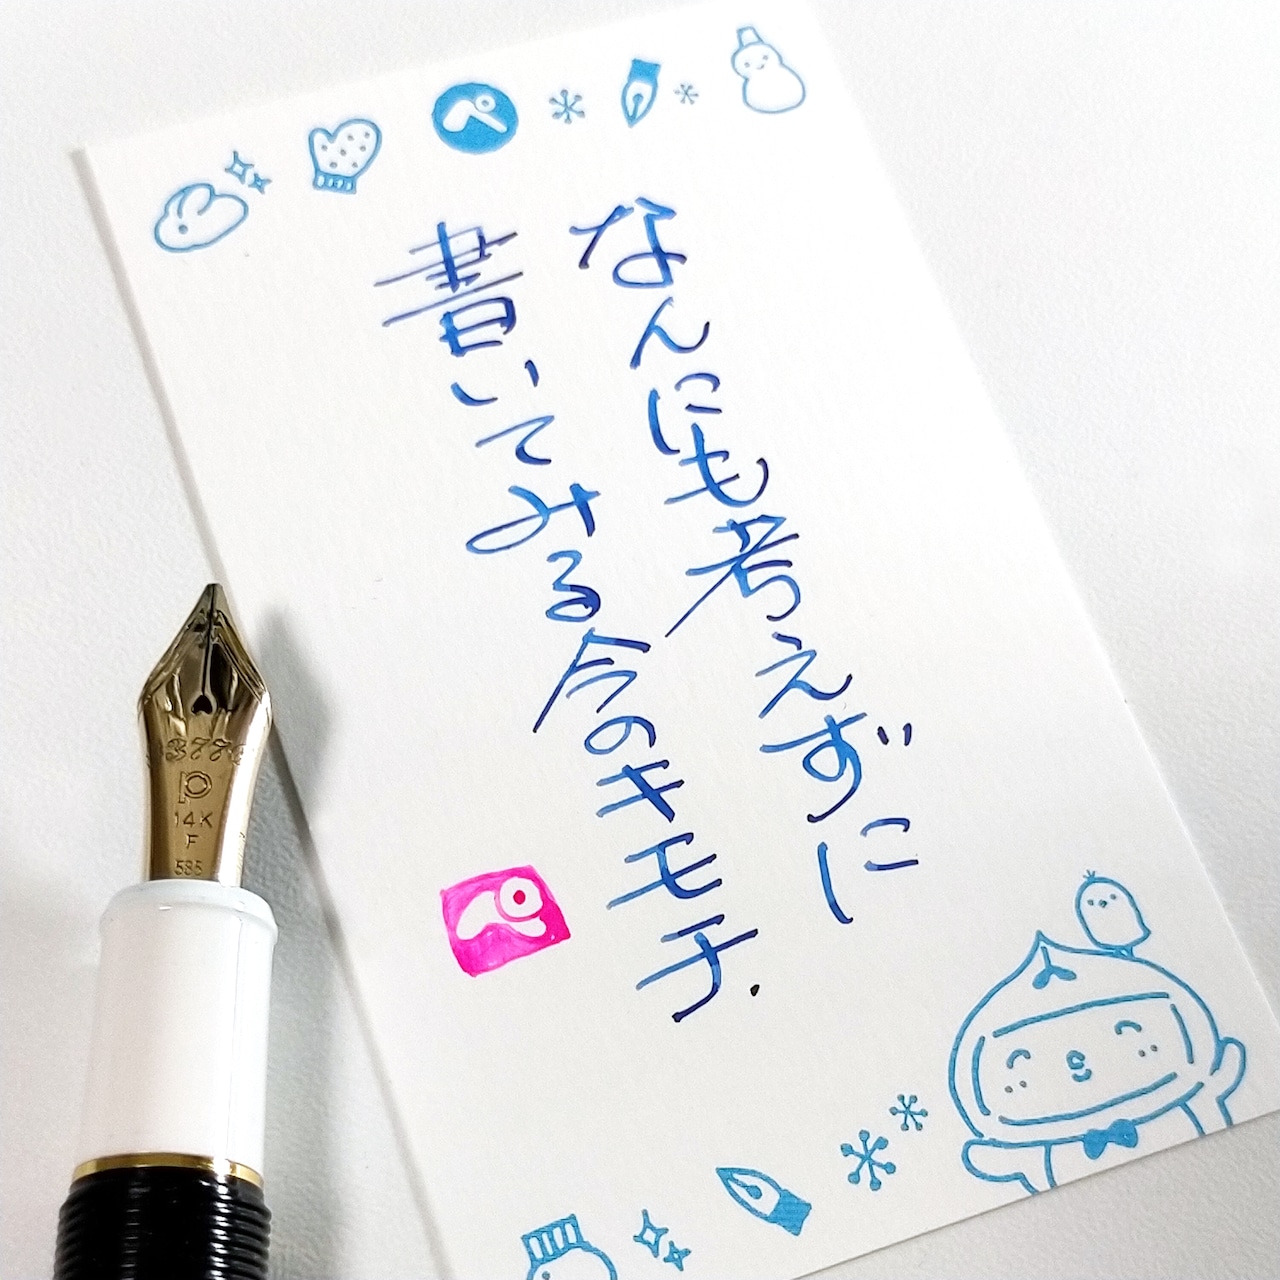 なんにも考えずに
書いてみる今のキモチ.
ペ
ペ
P
14K
F
585